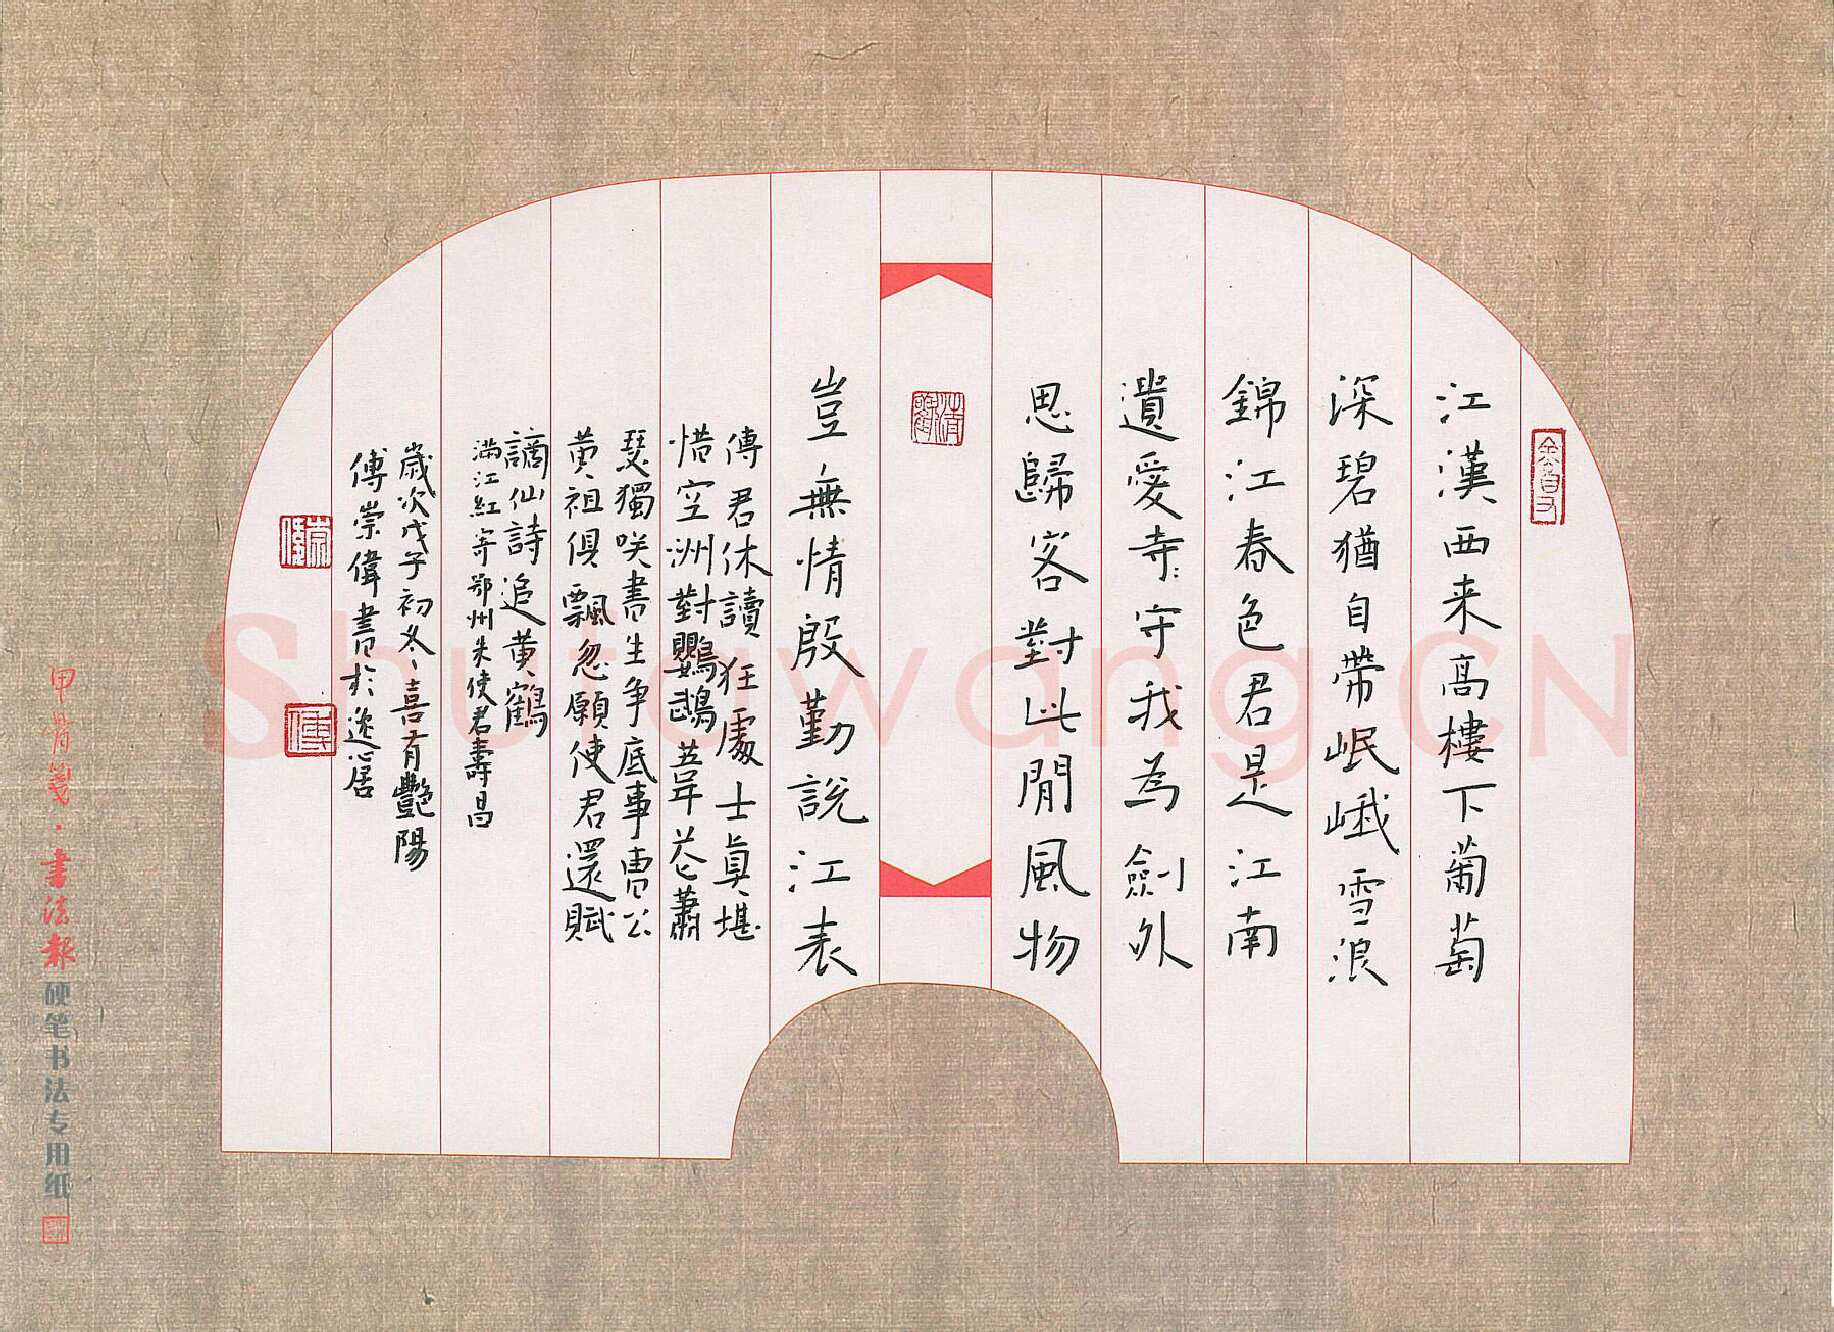 江漢西来高樓下葡萄
深碧猶自帶岷峨雪浪
錦江春色君是江南
遺愛寺:守我為劍外
思歸客對此閒風物
豈無情殷勤說江表
傳君休讀狂處士真堪
惜空洲對鸚鵡葦花蕭
瑟獨咲書生争底事曹公
黄祖俱飄忽願使君還賦
謫仙詩追黄鶴
滿江紅寄鄂州朱使君壽昌
歲次戊子初冬喜有艷陽
傅崇偉書於逸居
崇偉
傅
甲骨箋·書法報硬笔书法专用纸
Shufawang.CN